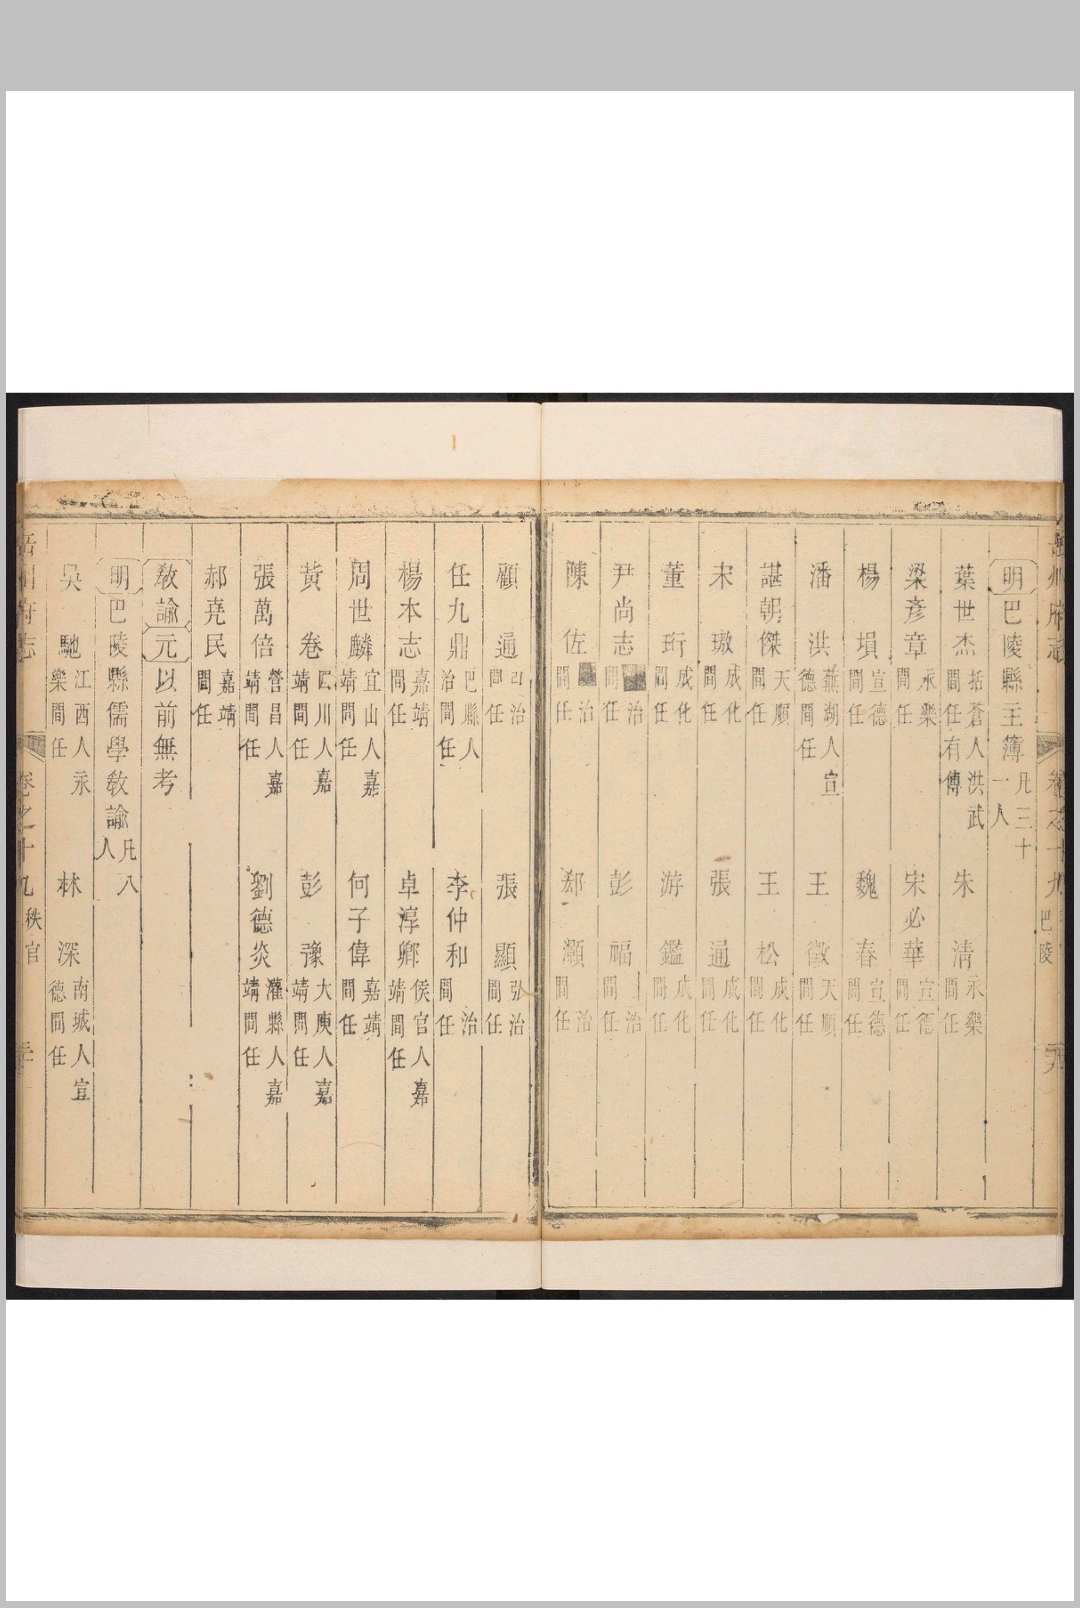 州府志 卷之十九 巴陵
明巴陵縣主簿凡三十一人
葉世杰括蒼人洪武間任有傳 朱清永樂間任
梁彥章永樂間任 宋必華宣德間任
楊塤宣德間任 魏春宣德間任
潘洪蕪湖人宣德間任 王徵天順間任
諶朝傑天順間任 王松成化間任
宋璈成化間任 張通成化間任
董珩成化間任 游鑑成化間任
尹尚志治間任 彭福治間任
陳佐治間任 郄灝治間任
顧通弘治間任 張顯弘治間任
任九鼎巴縣人治間任 李仲和治間任
楊本志嘉靖間任 卓淳卿侯官人嘉靖間任
周世麟宜山人嘉靖間任 何子偉嘉靖間任
黃卷四川人嘉靖間任 彭豫大庾人嘉靖間任
張萬倍營昌人嘉靖間任 劉德炎灌縣人嘉靖間任
郝堯民嘉靖間任
敎諭元以前無考
明巴陵縣儒學敎諭凡八人
吳馳江西人永樂間任 林深南城人宣德間任
岳州府志 卷之十九 秩官